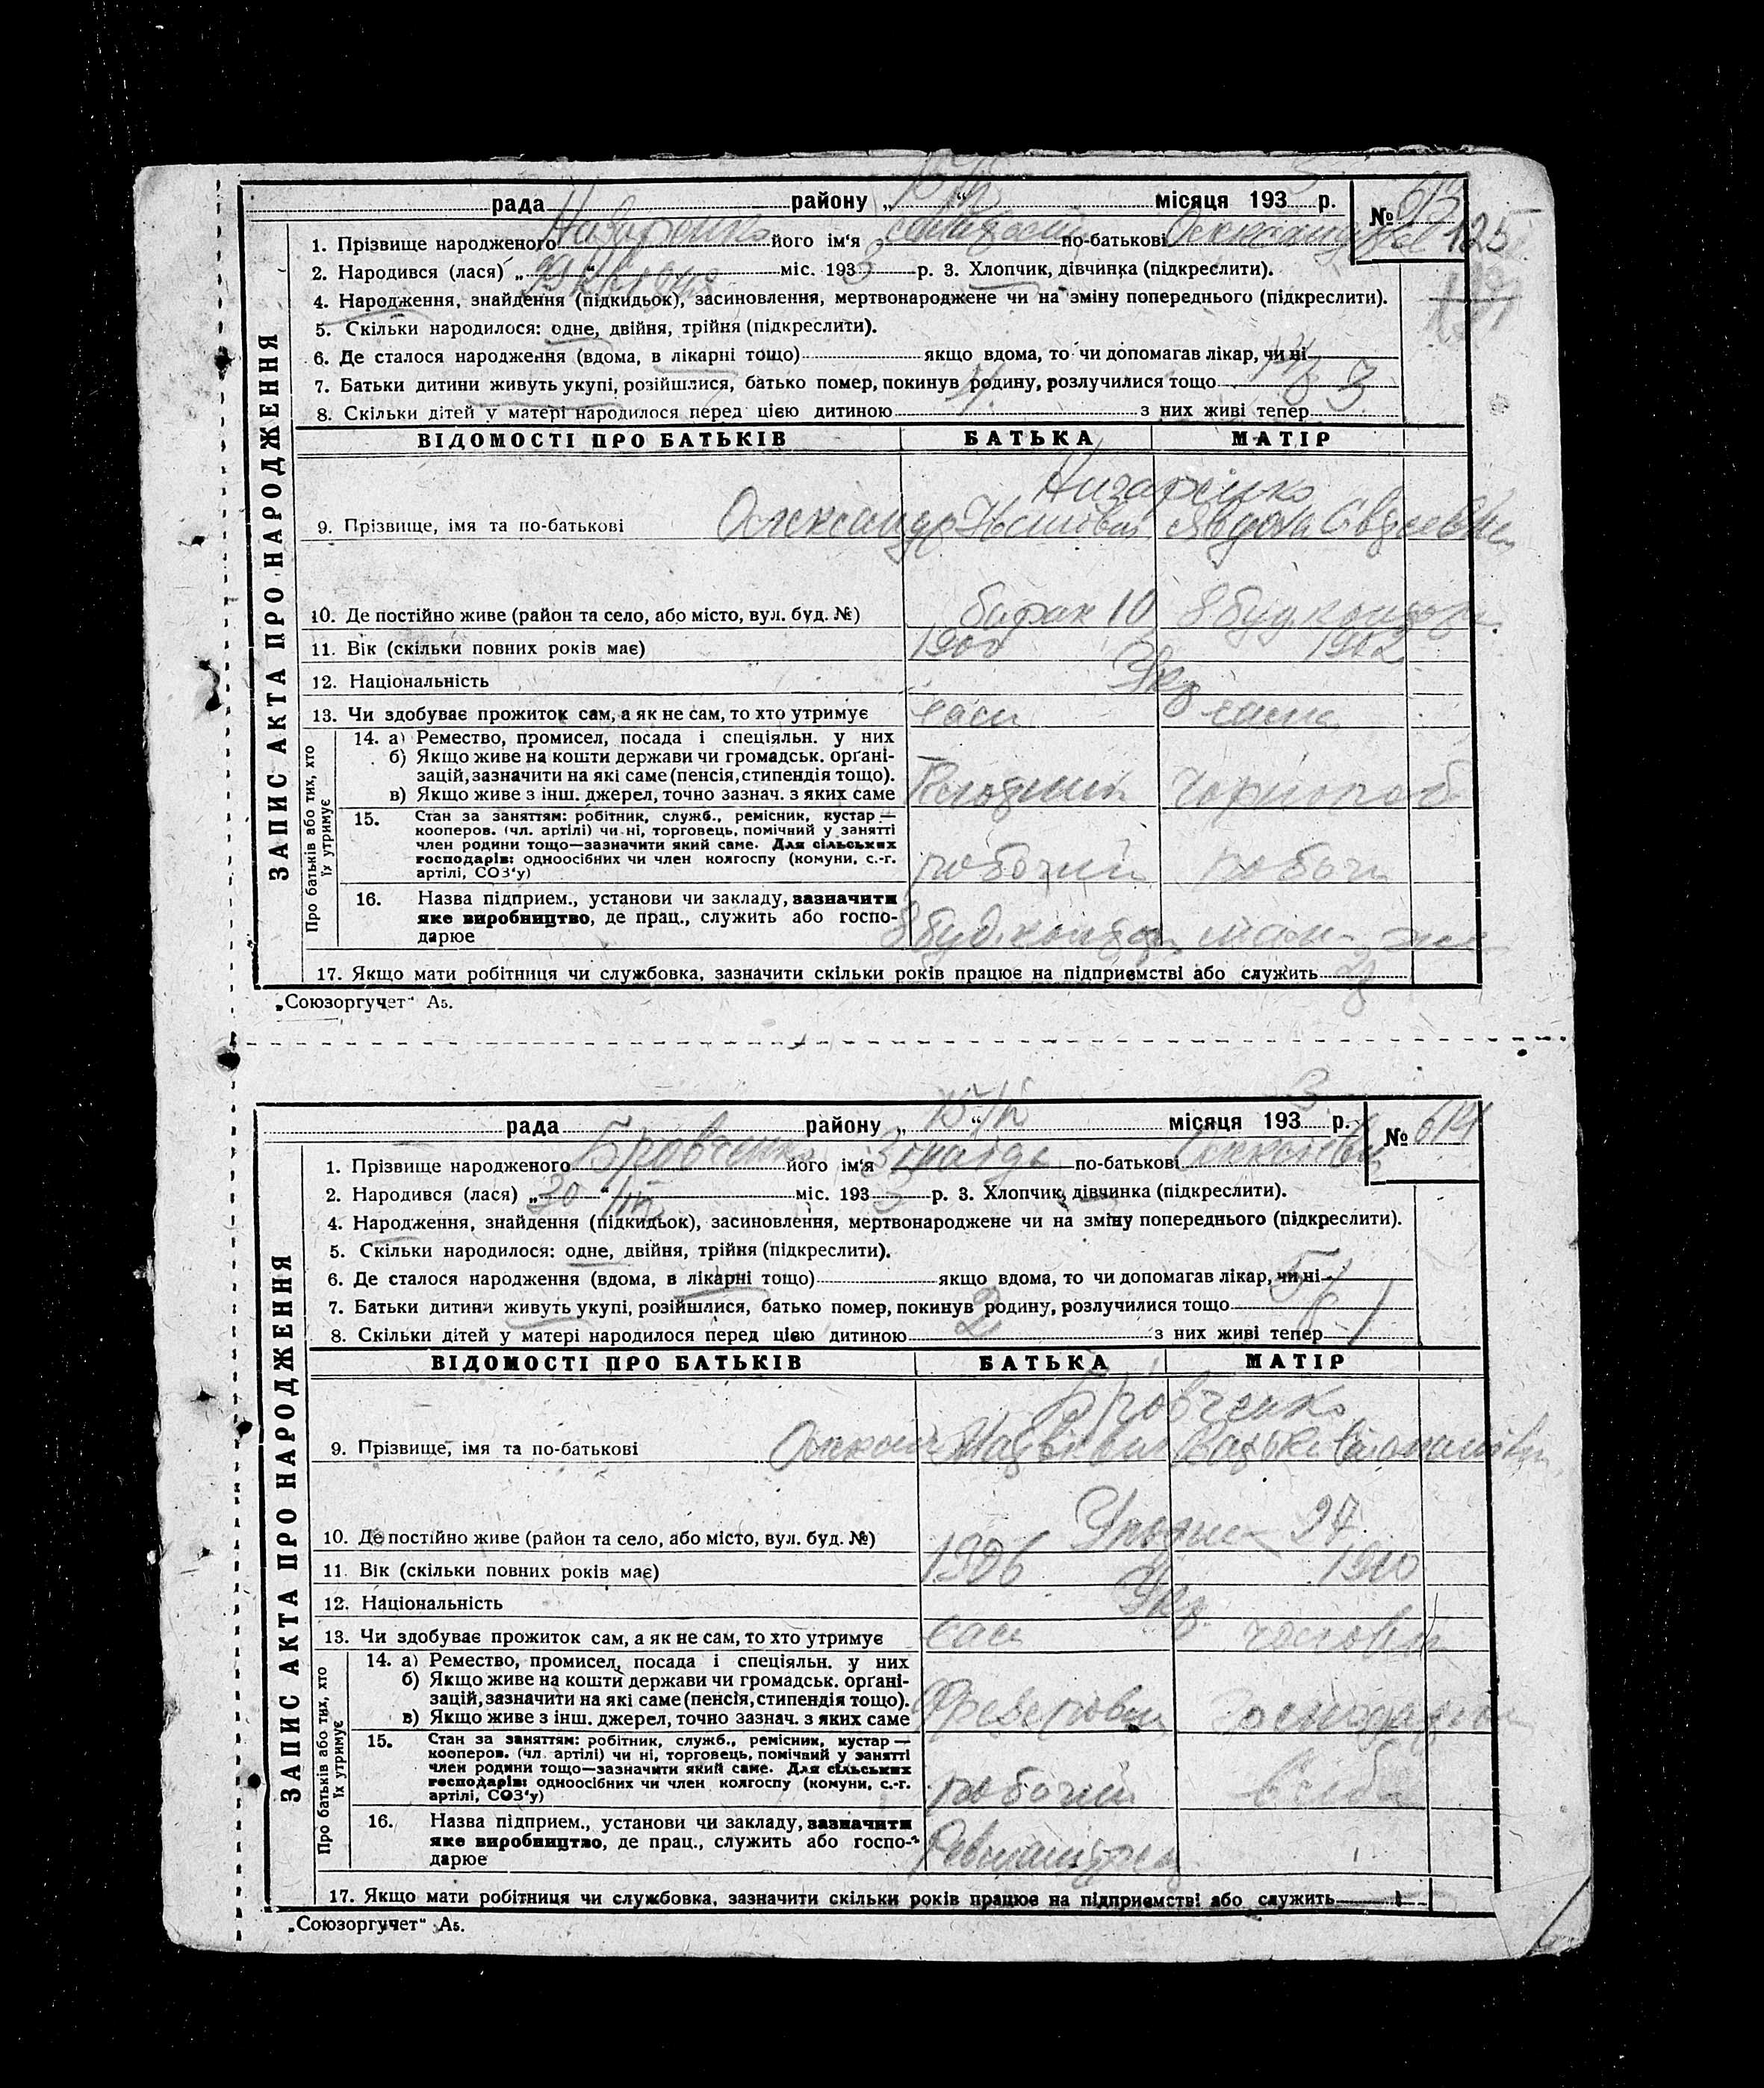 рада районуं „ “ місяця 193 3 р. № 613
1. Прізвище народженого Назаренко його імʼя по-батькові 125
2. Народився (лася) „ 29 “ квітня міс. 193 3 р. 3. Хлопчик, дівчинка (підкреслити).
4. Народження, знайдення (підкидьок), засиновлення, мертвонароджене чи на зміну попереднього (підкреслити).
5. Скільки народилося: одне, двійня, трійня (підкреслити).
6. Де сталося народження (вдома, в лікарні тощо) якщо вдома, то чи допомагав лікар, чи ні
7. Батьки дитини живуть укупі, розійшлися, батько помер, покинув родину, розлучилися тощо
8. Скільки дітей у матері народилося перед цією дитиною 4 з них живі тепер 3
ВІДОМОСТІ ПРО БАТЬКІВ БАТЬКА МАТІР
Назаренко
9. Прізвище, імя та по-батькові Олександр
10. Де постійно живе (район та село, або місто, вул. буд. №) барак 10
11. Вік (скільки повних років має) 1900 1902
12. Національність Укр
13. Чи здобуває прожиток сам, а як не сам, то хто утримує сам сама
14. а) Ремество, промисел, посада і спеціяльн. у них
б) Якщо живе на кошти держави чи громадськ. орґані-
зацій, зазначити на які саме (пенсія, стипендія тощо).
в) Якщо живе з інш. джерел, точно зазнач. з яких саме чорнороб
15. Стан за заняттям: робітник, служб., ремісник, кустар —
кооперов. (чл. артілі) чи ні, торговець, помічний у занятті
член родини тощо—зазначити який саме. Для сільських
господарів: одноосібних чи член колгоспу (комуни, с.-г.
артілі, СОЗ'у) робочий робоч
16. Назва підприєм., установи чи закладу, зазначити
яке виробництво, де прац., служить або госпо-
дарює
17. Якщо мати робітниця чи службовка, зазначити скільки років працює на підприємстві або служить
ЗАПИС АКТА ПРО НАРОДЖЕННЯ
Про батьків або тих, хто
їх утримує
„Союзоргучет“ А5.
рада району „ “ місяця 193 3 р. № 614
1. Прізвище народженого Бровченко його імʼя Зінаїда по-батькові
2. Народився (лася) „ 30 “ міс. 193 3 р. 3. Хлопчик, дівчинка (підкреслити).
4. Народження, знайдення (підкидьок), засиновлення, мертвонароджене чи на зміну попереднього (підкреслити).
5. Скільки народилося: одне, двійня, трійня (підкреслити).
6. Де сталося народження (вдома, в лікарні тощо) якщо вдома, то чи допомагав лікар, чи ні
7. Батьки дитини живуть укупі, розійшлися, батько помер, покинув родину, розлучилися тощо
8. Скільки дітей у матері народилося перед цією дитиною 2 з них живі тепер 1
ВІДОМОСТІ ПРО БАТЬКІВ БАТЬКА МАТІР
Бровченко
9. Прізвище, імя та по-батькові
10. Де постійно живе (район та село, або місто, вул. буд. №)
11. Вік (скільки повних років має) 1906 1910
12. Національність Укр
13. Чи здобуває прожиток сам, а як не сам, то хто утримує сам чоловік
14. а) Ремество, промисел, посада і спеціяльн. у них
б) Якщо живе на кошти держави чи громадськ. орґані-
зацій, зазначити на які саме (пенсія, стипендія тощо).
в) Якщо живе з інш. джерел, точно зазнач. з яких саме
15. Стан за заняттям: робітник, служб., ремісник, кустар —
кооперов. (чл. артілі) чи ні, торговець, помічний у занятті
член родини тощо—зазначити який саме. Для сільських
господарів: одноосібних чи член колгоспу (комуни, с.-г.
артілі, СОЗ'у) робочий
16. Назва підприєм., установи чи закладу, зазначити
яке виробництво, де прац., служить або госпо-
дарює
17. Якщо мати робітниця чи службовка, зазначити скільки років працює на підприємстві або служить
ЗАПИС АКТА ПРО НАРОДЖЕННЯ
Про батьків або тих, хто
їх утримує
„Союзоргучет“ А5.